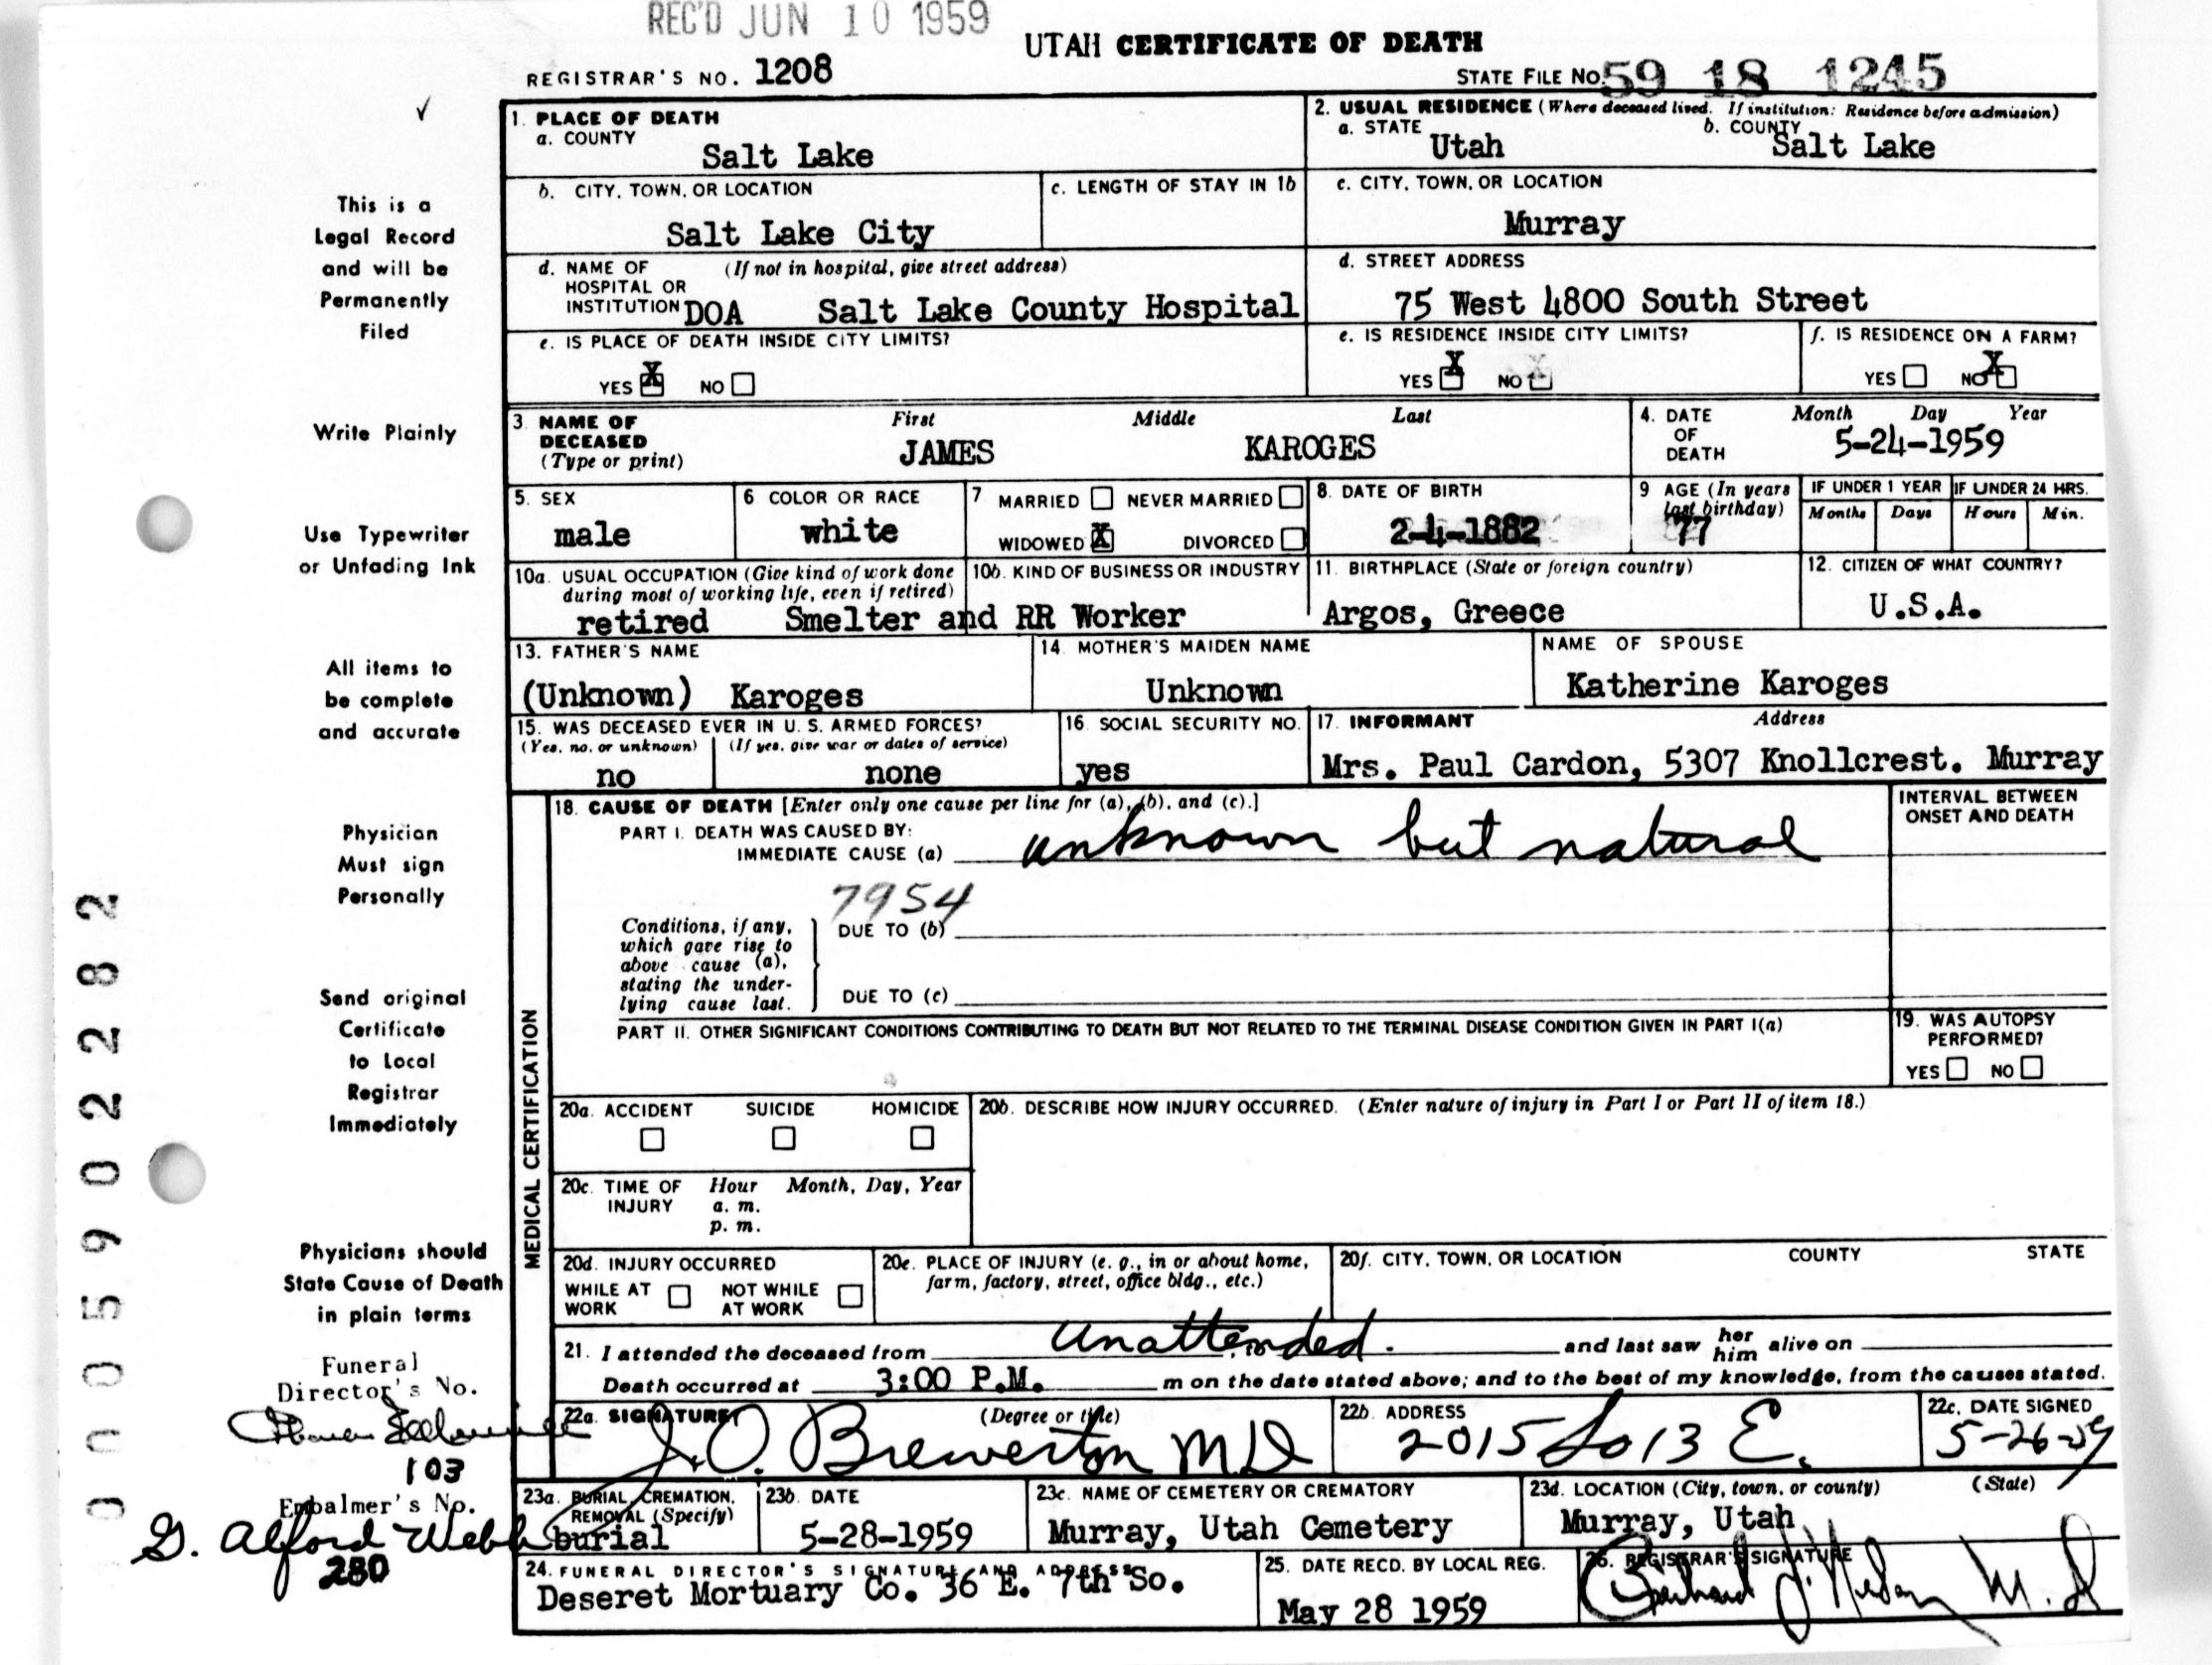 REC'D JUN 10 1959
UTAH CERTIFICATE OF DEATH
REGISTRAR'S NO. 1208
STATE FILE NO. 59 18 1245
✓
This is a
Legal Record
and will be
Permanently
Filed
Write Plainly
Use Typewriter
or Unfading Ink
All items to
be complete
and accurate
Physician
Must sign
Personally
Send original
Certificate
to Local
Registrar
Immediately
Physicians should
State Cause of Death
in plain terms
Funeral
Director's No.
103
Embalmer's No.
G. Alford Webb
280
0005902282
1. PLACE OF DEATH
a. COUNTY
Salt Lake
2. USUAL RESIDENCE (Where deceased lived. If institution: Residence before admission)
a. STATE
Utah
b. COUNTY
Salt Lake
b. CITY, TOWN, OR LOCATION
Salt Lake City
c. LENGTH OF STAY IN 1b
c. CITY, TOWN, OR LOCATION
Murray
d. NAME OF (If not in hospital, give street address)
HOSPITAL OR
INSTITUTION DOA Salt Lake County Hospital
d. STREET ADDRESS
75 West 4800 South Street
e. IS PLACE OF DEATH INSIDE CITY LIMITS?
YES X NO
e. IS RESIDENCE INSIDE CITY LIMITS?
YES X NO
f. IS RESIDENCE ON A FARM?
YES NO X
3. NAME OF
DECEASED
(Type or print)
First Middle Last
JAMES KAROGES
4. DATE
OF
DEATH
Month Day Year
5-24-1959
5. SEX
male
6 COLOR OR RACE
white
7 MARRIED NEVER MARRIED
WIDOWED X DIVORCED
8. DATE OF BIRTH
2-4-1882
9 AGE (In years
last birthday)
77
IF UNDER 1 YEAR IF UNDER 24 HRS.
Months Days Hours Min.
10a. USUAL OCCUPATION (Give kind of work done
during most of working life, even if retired)
10b. KIND OF BUSINESS OR INDUSTRY
retired Smelter and RR Worker
11. BIRTHPLACE (State or foreign country)
Argos, Greece
12. CITIZEN OF WHAT COUNTRY?
U.S.A.
13. FATHER'S NAME
(Unknown) Karoges
14. MOTHER'S MAIDEN NAME
Unknown
NAME OF SPOUSE
Katherine Karoges
15. WAS DECEASED EVER IN U. S. ARMED FORCES?
(Yes, no, or unknown) (If yes, give war or dates of service)
no none
16. SOCIAL SECURITY NO.
yes
17. INFORMANT Address
Mrs. Paul Cardon, 5307 Knollcrest. Murray
MEDICAL CERTIFICATION
18. CAUSE OF DEATH [Enter only one cause per line for (a), (b), and (c).]
PART I. DEATH WAS CAUSED BY:
IMMEDIATE CAUSE (a) unknown but natural
INTERVAL BETWEEN
ONSET AND DEATH
7954
Conditions, if any,
which gave rise to
above cause (a),
stating the under-
lying cause last.
DUE TO (b)
DUE TO (c)
PART II. OTHER SIGNIFICANT CONDITIONS CONTRIBUTING TO DEATH BUT NOT RELATED TO THE TERMINAL DISEASE CONDITION GIVEN IN PART I(a)
19. WAS AUTOPSY
PERFORMED?
YES NO
20a. ACCIDENT SUICIDE HOMICIDE
20b. DESCRIBE HOW INJURY OCCURRED. (Enter nature of injury in Part I or Part II of item 18.)
20c. TIME OF
INJURY
Hour Month, Day, Year
a. m.
p. m.
20d. INJURY OCCURRED
WHILE AT
WORK
NOT WHILE
AT WORK
20e. PLACE OF INJURY (e. g., in or about home,
farm, factory, street, office bldg., etc.)
20f. CITY, TOWN, OR LOCATION COUNTY STATE
21. I attended the deceased from Unattended. and last saw her him alive on
Death occurred at 3:00 P.M. m on the date stated above; and to the best of my knowledge, from the causes stated.
22a. SIGNATURE (Degree or title)
J. O. Brewerton M.D
22b. ADDRESS
2015 So 13 E.
22c. DATE SIGNED
5-26-59
23a. BURIAL, CREMATION,
REMOVAL (Specify)
burial
23b. DATE
5-28-1959
23c. NAME OF CEMETERY OR CREMATORY
Murray, Utah Cemetery
23d. LOCATION (City, town, or county) (State)
Murray, Utah
24. FUNERAL DIRECTOR'S SIGNATURE AND ADDRESS
Deseret Mortuary Co. 36 E. 7th So.
25. DATE RECD. BY LOCAL REG.
May 28 1959
26. REGISTRAR'S SIGNATURE
M.D